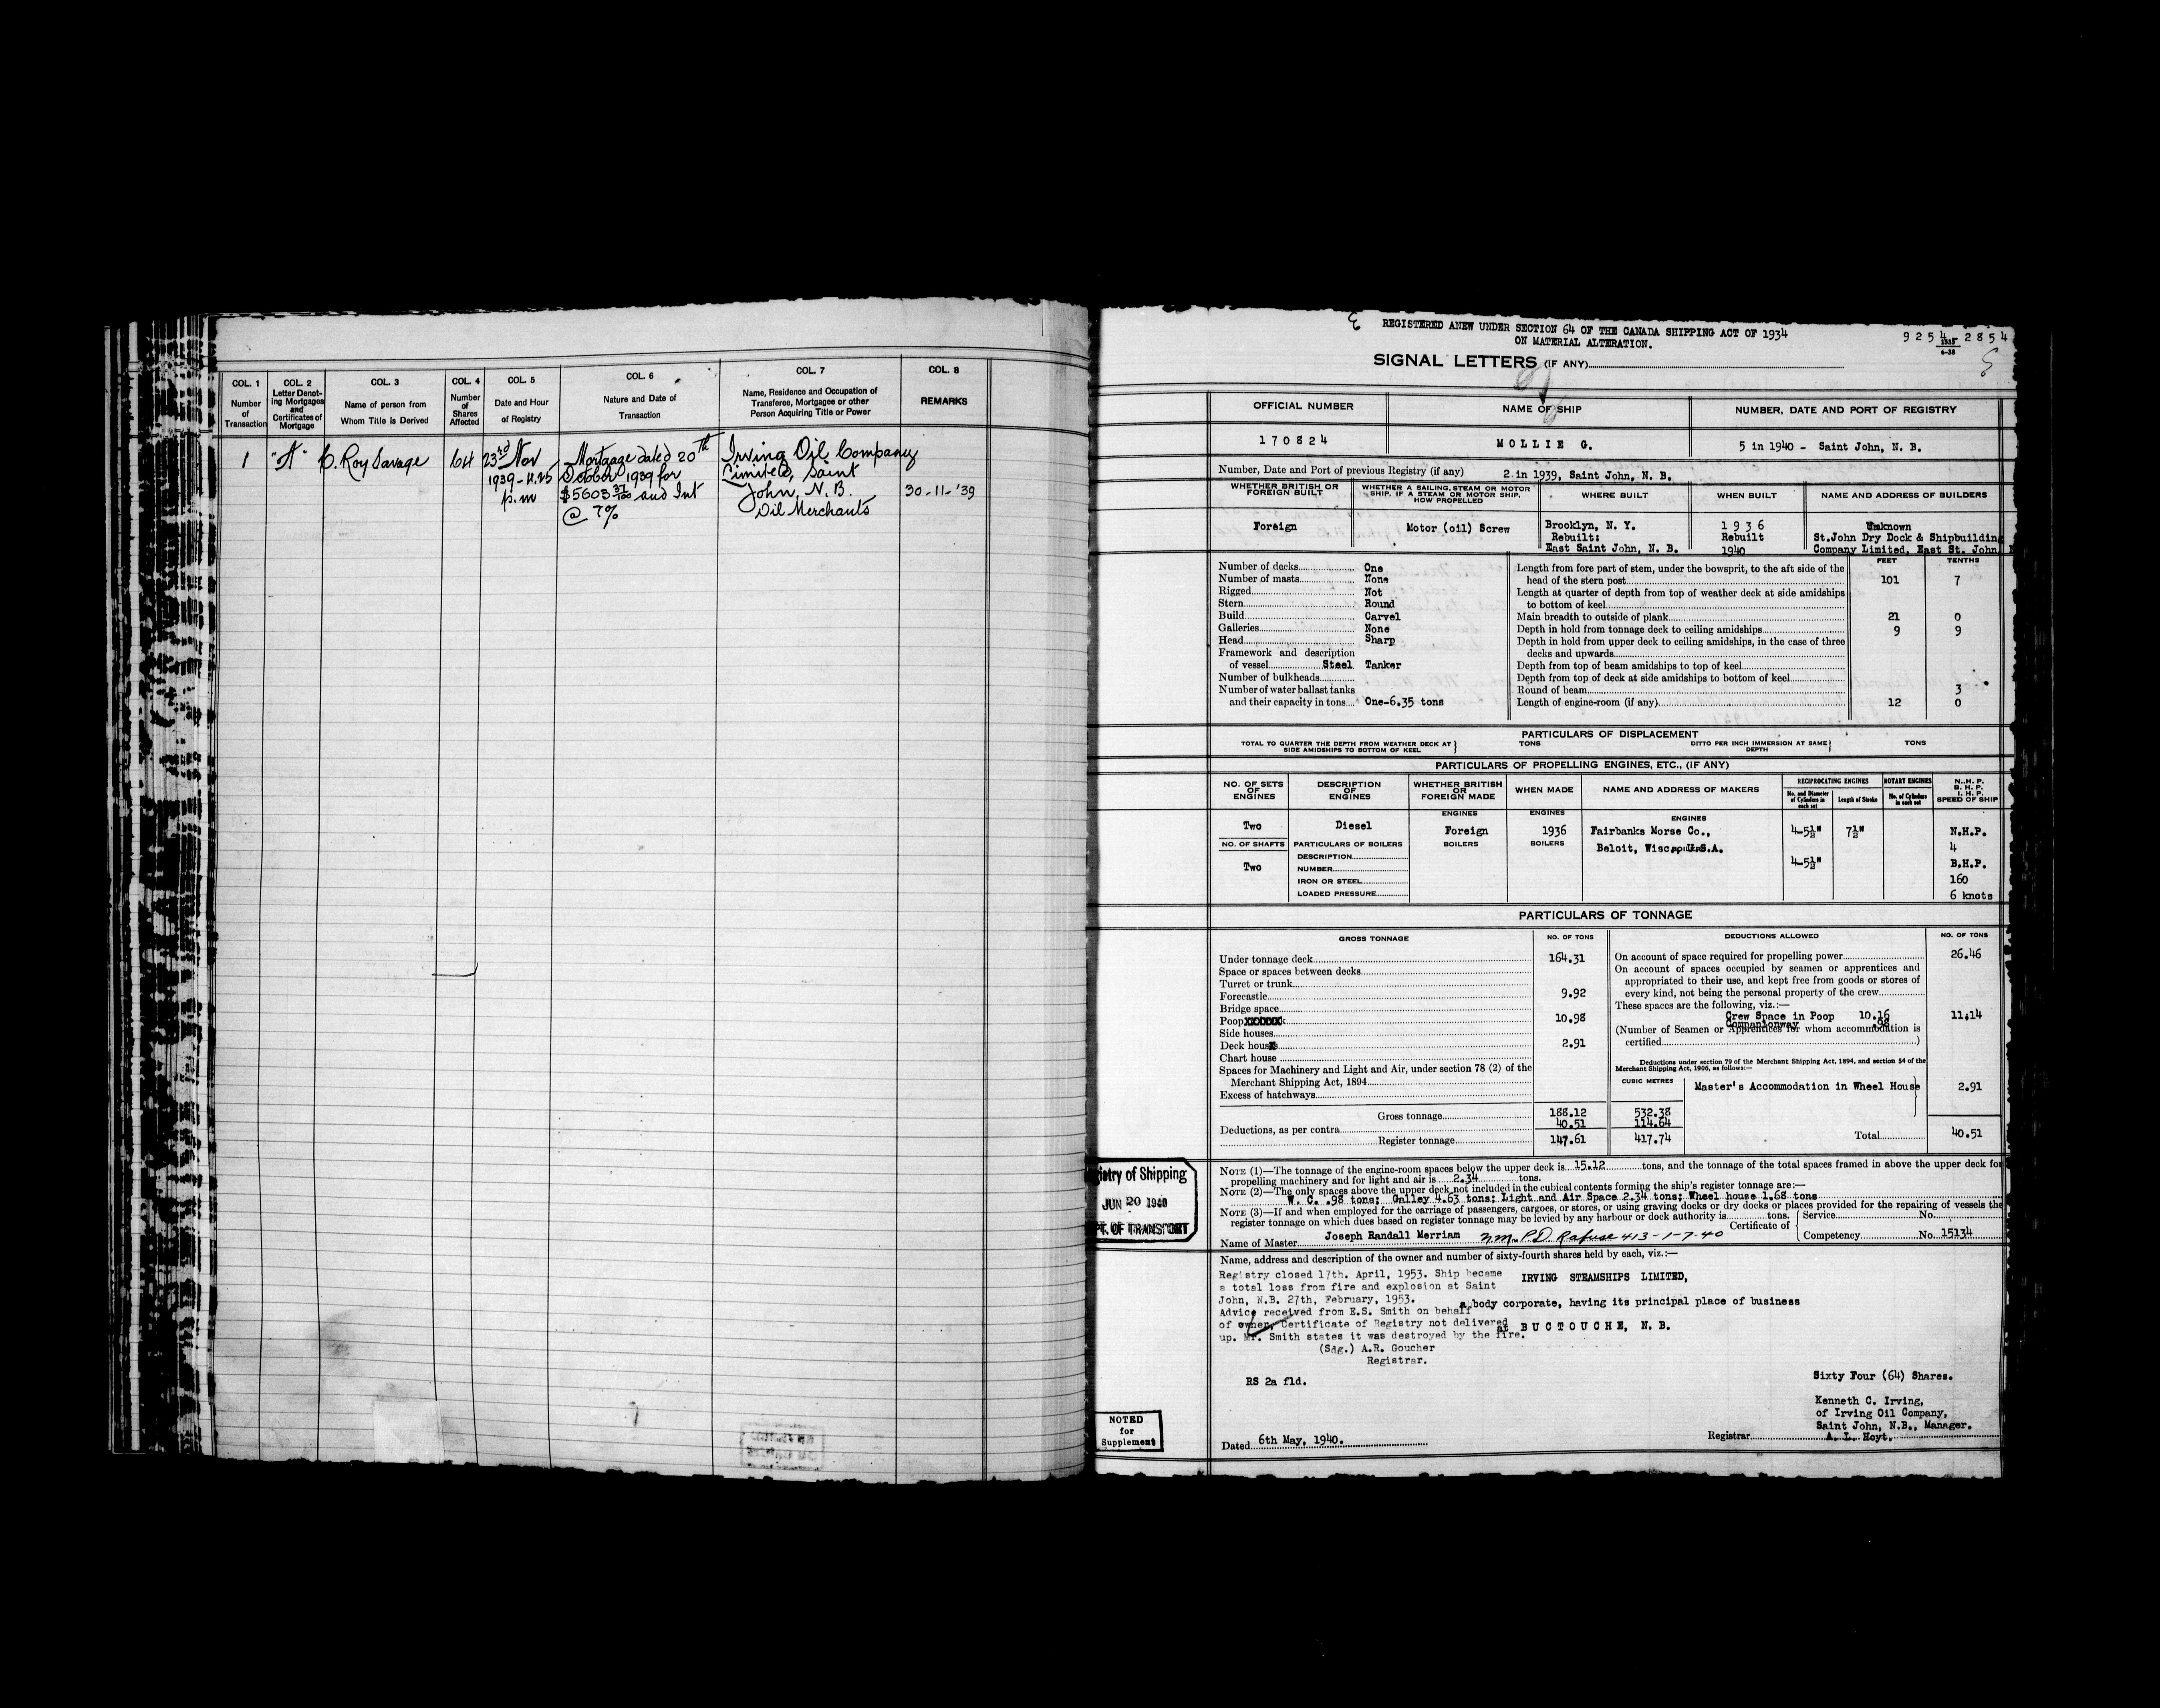 COL. 1 COL. 2 COL. 3 COL. 4 COL. 5 COL. 6 COL. 7 COL. 8
Number of Transaction
Letter Denoting Mortgages and Certificates of Mortgage
Name of person from Whom Title is Derived
Number of Shares Affected
Date and Hour of Registry
Nature and Date of Transaction
Name, Residence and Occupation of Transferee, Mortgagee or other Person Acquiring Title or Power
REMARKS
1 "A" C. Roy Savage 64 23rd Nov 1939 - 4.25 p.m
Mortgage dated 20th
October 1939 for
$5603 37/100 and Int
@ 7%
Irving Oil Company
Limited, Saint
John, N. B.
Oil Merchants
30-11-'39
REGISTERED ANEW UNDER SECTION 64 OF THE CANADA SHIPPING ACT OF 1934
ON MATERIAL ALTERATION.
9254 2854
SIGNAL LETTERS (IF ANY)
OFFICIAL NUMBER NAME OF SHIP NUMBER, DATE AND PORT OF REGISTRY
170824 MOLLIE G. 5 in 1940 - Saint John, N. B.
Number, Date and Port of previous Registry (if any) 2 in 1939, Saint John, N. B.
WHETHER BRITISH OR FOREIGN BUILT
WHETHER A SAILING, STEAM OR MOTOR SHIP, IF A STEAM OR MOTOR SHIP, HOW PROPELLED
WHERE BUILT WHEN BUILT NAME AND ADDRESS OF BUILDERS
Foreign Motor (oil) Screw
Brooklyn, N. Y.
Rebuilt:
East Saint John, N. B.
1936
Rebuilt
1940
Unknown
St.John Dry Dock & Shipbuilding
Company Limited, East St. John,
Number of decks One
Number of masts None
Rigged Not
Stern Round
Build Carvel
Galleries None
Head Sharp
Framework and description
of vessel Steel Tanker
Number of bulkheads
Number of water ballast tanks
and their capacity in tons One-6.35 tons
FEET TENTHS
Length from fore part of stem, under the bowsprit, to the aft side of the
head of the stern post 101 7
Length at quarter of depth from top of weather deck at side amidships
to bottom of keel
Main breadth to outside of plank 21 0
Depth in hold from tonnage deck to ceiling amidships 9 9
Depth in hold from upper deck to ceiling amidships, in the case of three
decks and upwards
Depth from top of beam amidships to top of keel
Depth from top of deck at side amidships to bottom of keel
Round of beam 3
Length of engine-room (if any) 12 0
PARTICULARS OF DISPLACEMENT
TOTAL TO QUARTER THE DEPTH FROM WEATHER DECK AT SIDE AMIDSHIPS TO BOTTOM OF KEEL } TONS DITTO PER INCH IMMERSION AT SAME DEPTH } TONS
PARTICULARS OF PROPELLING ENGINES, ETC., (IF ANY)
NO. OF SETS OF ENGINES
DESCRIPTION OF ENGINES
WHETHER BRITISH OR FOREIGN MADE
WHEN MADE
NAME AND ADDRESS OF MAKERS
RECIPROCATING ENGINES
No. and Diameter of Cylinders in each set
Length of Stroke
ROTARY ENGINES
No. of Cylinders in each set
N. H. P.
B. H. P.
I. H. P.
SPEED OF SHIP
ENGINES ENGINES ENGINES
Two Diesel Foreign 1936 Fairbanks Morse Co., 4-5½" 7½" N.H.P.
NO. OF SHAFTS PARTICULARS OF BOILERS BOILERS BOILERS Beloit, Wisc. U.S.A. 4
Two DESCRIPTION 4-5½" B.H.P.
NUMBER
IRON OR STEEL 160
LOADED PRESSURE 6 knots
PARTICULARS OF TONNAGE
GROSS TONNAGE NO. OF TONS DEDUCTIONS ALLOWED NO. OF TONS
Under tonnage deck 164.31
Space or spaces between decks
Turret or trunk
Forecastle 9.92
Bridge space
Poop 10.98
Side houses
Deck house 2.91
Chart house
Spaces for Machinery and Light and Air, under section 78 (2) of the
Merchant Shipping Act, 1894
Excess of hatchways
Gross tonnage 188.12 532.38
Deductions, as per contra 40.51 114.64
Register tonnage 147.61 417.74
On account of space required for propelling power 26.46
On account of spaces occupied by seamen or apprentices and
appropriated to their use, and kept free from goods or stores of
every kind, not being the personal property of the crew
These spaces are the following, viz.:—
Crew Space in Poop 10.16 11.14
Companionway .98
(Number of Seamen or Apprentices for whom accommodation is
certified )
Deductions under section 79 of the Merchant Shipping Act, 1894, and section 54 of the
Merchant Shipping Act, 1906, as follows:—
CUBIC METRES
Master's Accommodation in Wheel House 2.91
Total 40.51
NOTE (1)—The tonnage of the engine-room spaces below the upper deck is 15.12 tons, and the tonnage of the total spaces framed in above the upper deck for
propelling machinery and for light and air is 2.34 tons.
NOTE (2)—The only spaces above the upper deck not included in the cubical contents forming the ship's register tonnage are:—
W. C. .98 tons; Galley 4.63 tons; Light and Air Space 2.34 tons; Wheel house 1.68 tons
NOTE (3)—If and when employed for the carriage of passengers, cargoes, or stores, or using graving docks or dry docks or places provided for the repairing of vessels the
register tonnage on which dues based on register tonnage may be levied by any harbour or dock authority is tons.
Certificate of { Service No.
Competency No. 15134
Name of Master Joseph Randall Merriam N.M. P.D. Rafuse 413-1-7-40
istry of Shipping
JUN 20 1940
PT. OF TRANSPORT
Name, address and description of the owner and number of sixty-fourth shares held by each, viz.:—
Registry closed 17th. April, 1953. Ship became
a total loss from fire and explosion at Saint
John, N.B. 27th, February, 1953.
Advice received from E.S. Smith on behalf
of owner. Certificate of Registry not delivered
up. Mr. Smith states it was destroyed by the fire.
(Sdg.) A.R. Goucher
Registrar.
RS 2a fld.
IRVING STEAMSHIPS LIMITED,
a body corporate, having its principal place of business
at BUCTOUCHE, N. B.
Sixty Four (64) Shares.
Kenneth C. Irving,
of Irving Oil Company,
Saint John, N.B., Manager.
NOTED
for
Supplement
Dated 6th May, 1940.
Registrar A. L. Hoyt.